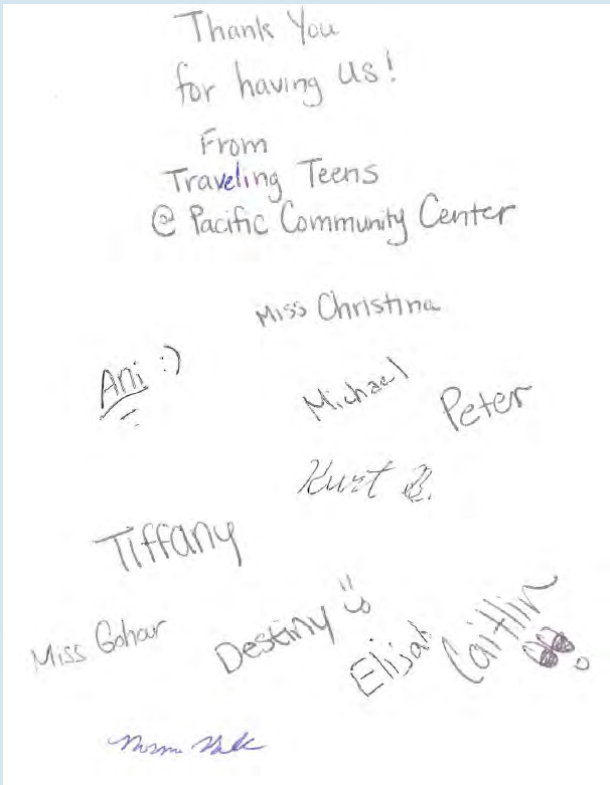 Thank You
for having us!
From
Traveling Teens
@ Pacific Community Center
Miss Christina
Ani :)
Michael
Peter
Kurt B.
Tiffany
Miss Gohar
Destiny
Elijah
Caitlin